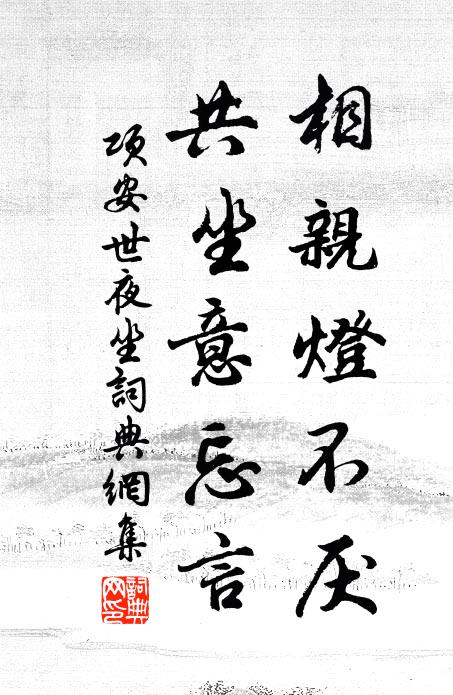 相親燈不厌
共坐意忘言
項安世夜坐詞典網集
詞典網印